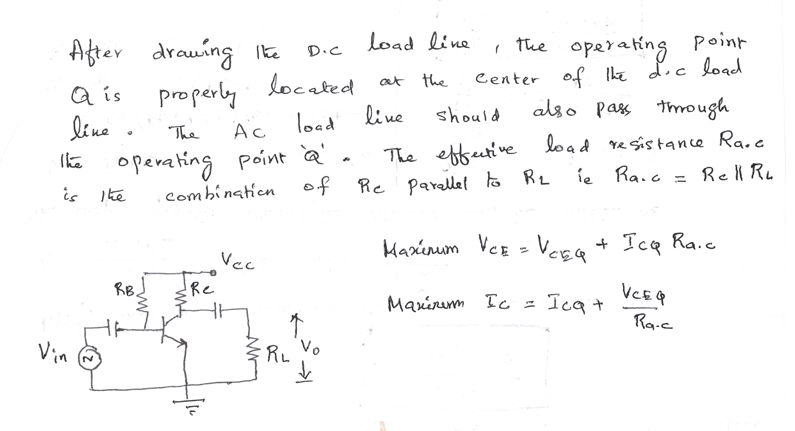 After drawing the D.C load line, the operating point
Q is properly located at the center of the d.c load
line. The AC load line should also pass through
the operating point 'Q'. The effective load resistance Ra.c
is the combination of Rc parallel to RL ie Ra.c = Rc || RL
Maximum VCE = VCEQ + ICQ Ra.c
Maximum Ic = ICQ + VCEQ
Ra.c
Vcc
RB
Rc
Vin
N
RL
Vo